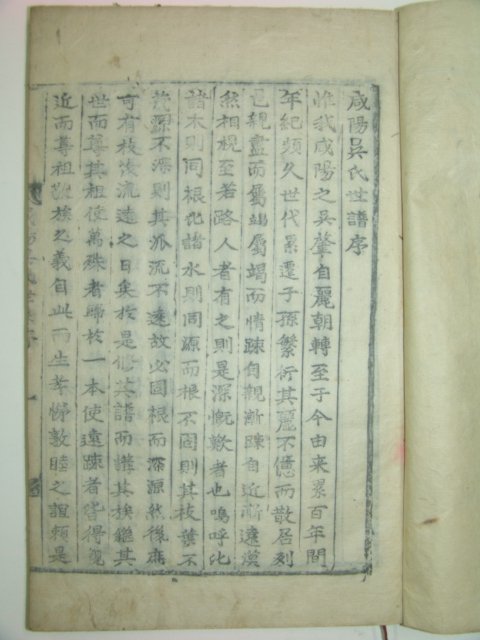 咸陽吳氏世譜序
惟我咸陽之吳肇自麗朝轉至于今由來累百年間
年紀頗久世代累遷子孫繁衍其麗不億而散居列
邑親盡而屬竭屬竭而情踈自親漸踈自近漸遠漠
然相視至若路人者有之則是深慨歎者也嗚呼比
諸木則同根比諸水則同源而根不固則其枝葉不
源不深則其派流不遠故必固根而深源然後庶
可有枝流遠之日矣於是修其譜而講其族繼其
世而尊其祖使萬殊者歸於一本使遠踈者皆得親
近而尊祖敬族之義自此而生孝悌敦睦之誼賴是